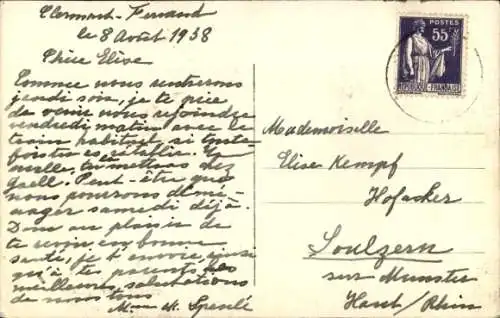 Clermont-Ferrand
le 8 Août 1938
Chère Elise
Comme nous rentrerons
jeudi soir, je te prie
de venir nous rejoindre
vendredi matin avec le
train habituel si toute
fois tu es rétablie. Tu
chez
Peut-être que
nous pourrons démé-
nager samedi déjà.
Donc au plaisir de
te revoir en bonne
santé, je t'envoie, ainsi
qu'à tes parents les
meilleures salutations
de nous tous
Mme W. Spenlé
POSTES
55c
REPUBLIQUE FRANÇAISE
Mademoiselle
Elise Kempf
Hofacker
Soulzern
sur Munster
Haut/Rhin